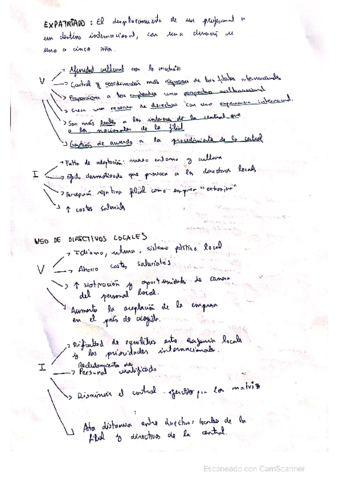 EXPATRIADO: El desplazamiento de un profesional a
un destino internacional, con una duración de
uno a cinco años.
V
Afinidad cultural con la matriz
Control y coordinación más rigurosa de las filiales internacionales
a los empleados una perspectiva multinacional
Crea una reserva de directivos con una experiencia internacional
Son más leales a los intereses de la central que
a los nacionales de la filial
Gestión de acuerdo a los procedimientos de la central
I
Falta de adaptación: nuevo entorno y cultura
Efecto desmotivador que provoca a los directivos locales
Percepción negativa filial como empresa "extranjera"
↑ costes salariales
USO DE DIRECTIVOS LOCALES
V
Idioma, cultura, sistema político local
Ahorro costes salariales
↑ Motivación y oportunidades de carrera
del personal local.
Aumenta la aceptación de la empresa
en el país de acogida.
I
Dificultad de equilibrio entre exigencias locales
y las prioridades internacionales.
Reclutamiento de
Personal cualificado
Disminuir el control por la matriz
Alta distancia entre directivos locales de la
filial y directivos de la central.
Escaneado con CamScanner